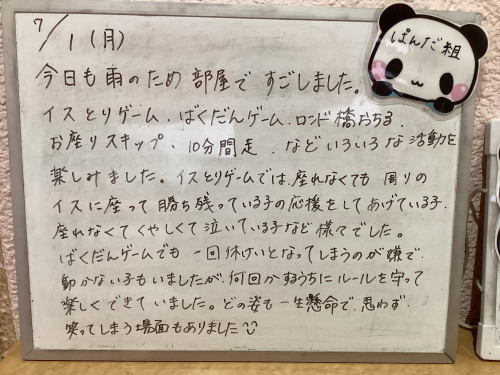 7/1(月)
ぱんだ組
今日も雨のため部屋ですごしました。
イスとりゲーム、ばくだんゲーム、ロンドン橋おちる、
お座りスキップ、10分間走、などいろいろな活動を
楽しみました。イスとりゲームでは、座れなくても周りの
イスに座って勝ち残っている子の応援をしてあげている子、
座れなくてくやしくて泣いている子など様々でした。
ばくだんゲームでも一回休けいとなってしまうのが嫌で、
動かない子もいましたが、何回かするうちにルールを守って
楽しくできていました。どの姿も一生懸命で、思わず、
笑ってしまう場面もありました